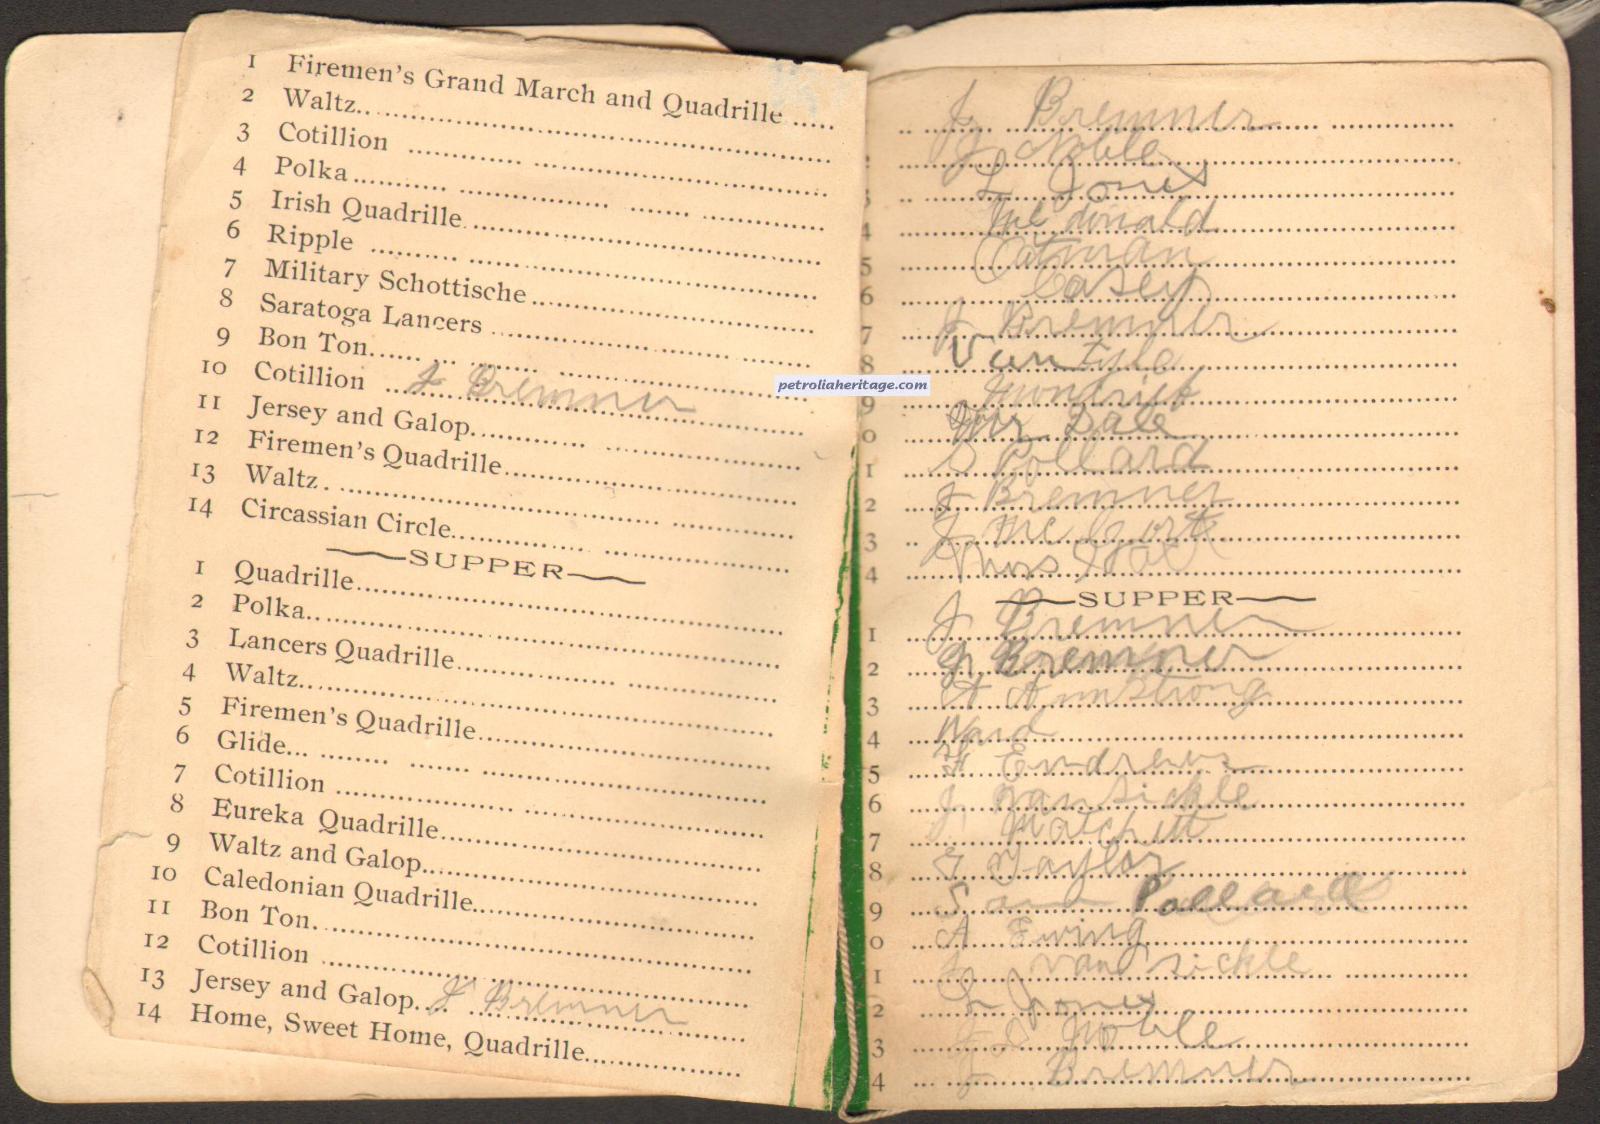 1 Firemen's Grand March and Quadrille .....
2 Waltz..
3 Cotillion
4 Polka
5 Irish Quadrille
6 Ripple
7 Military Schottische
8 Saratoga Lancers
9 Bon Ton
10 Cotillion J Bremner
11 Jersey and Galop
12 Firemen's Quadrille
13 Waltz
14 Circassian Circle
SUPPER
1 Quadrille
2 Polka
3 Lancers Quadrille
4 Waltz
5 Firemen's Quadrille
6 Glide
7 Cotillion
8 Eureka Quadrille
9 Waltz and Galop
10 Caledonian Quadrille
11 Bon Ton
12 Cotillion
13 Jersey and Galop J Bremner
14 Home, Sweet Home, Quadrille
petroliaheritage.com
J Bremner
J Noble
3 L Jones
4 McDonald
5 Oatman
6 Casey
7 J Bremner
8 VanTyle
9
0 Dale
1 S Pollard
2 J Bremner
3 J Mc
4 Thos
SUPPER
1 J Bremner
2 J Bremner
3 A Armstrong
4 Ward
5 F Endrews
6 J Vansickle
7 Matchett
8 G Taylor
9 Sam Pollard
0 A Ewing
1 J Vansickle
2 L Jones
3 Noble
4 J Bremner